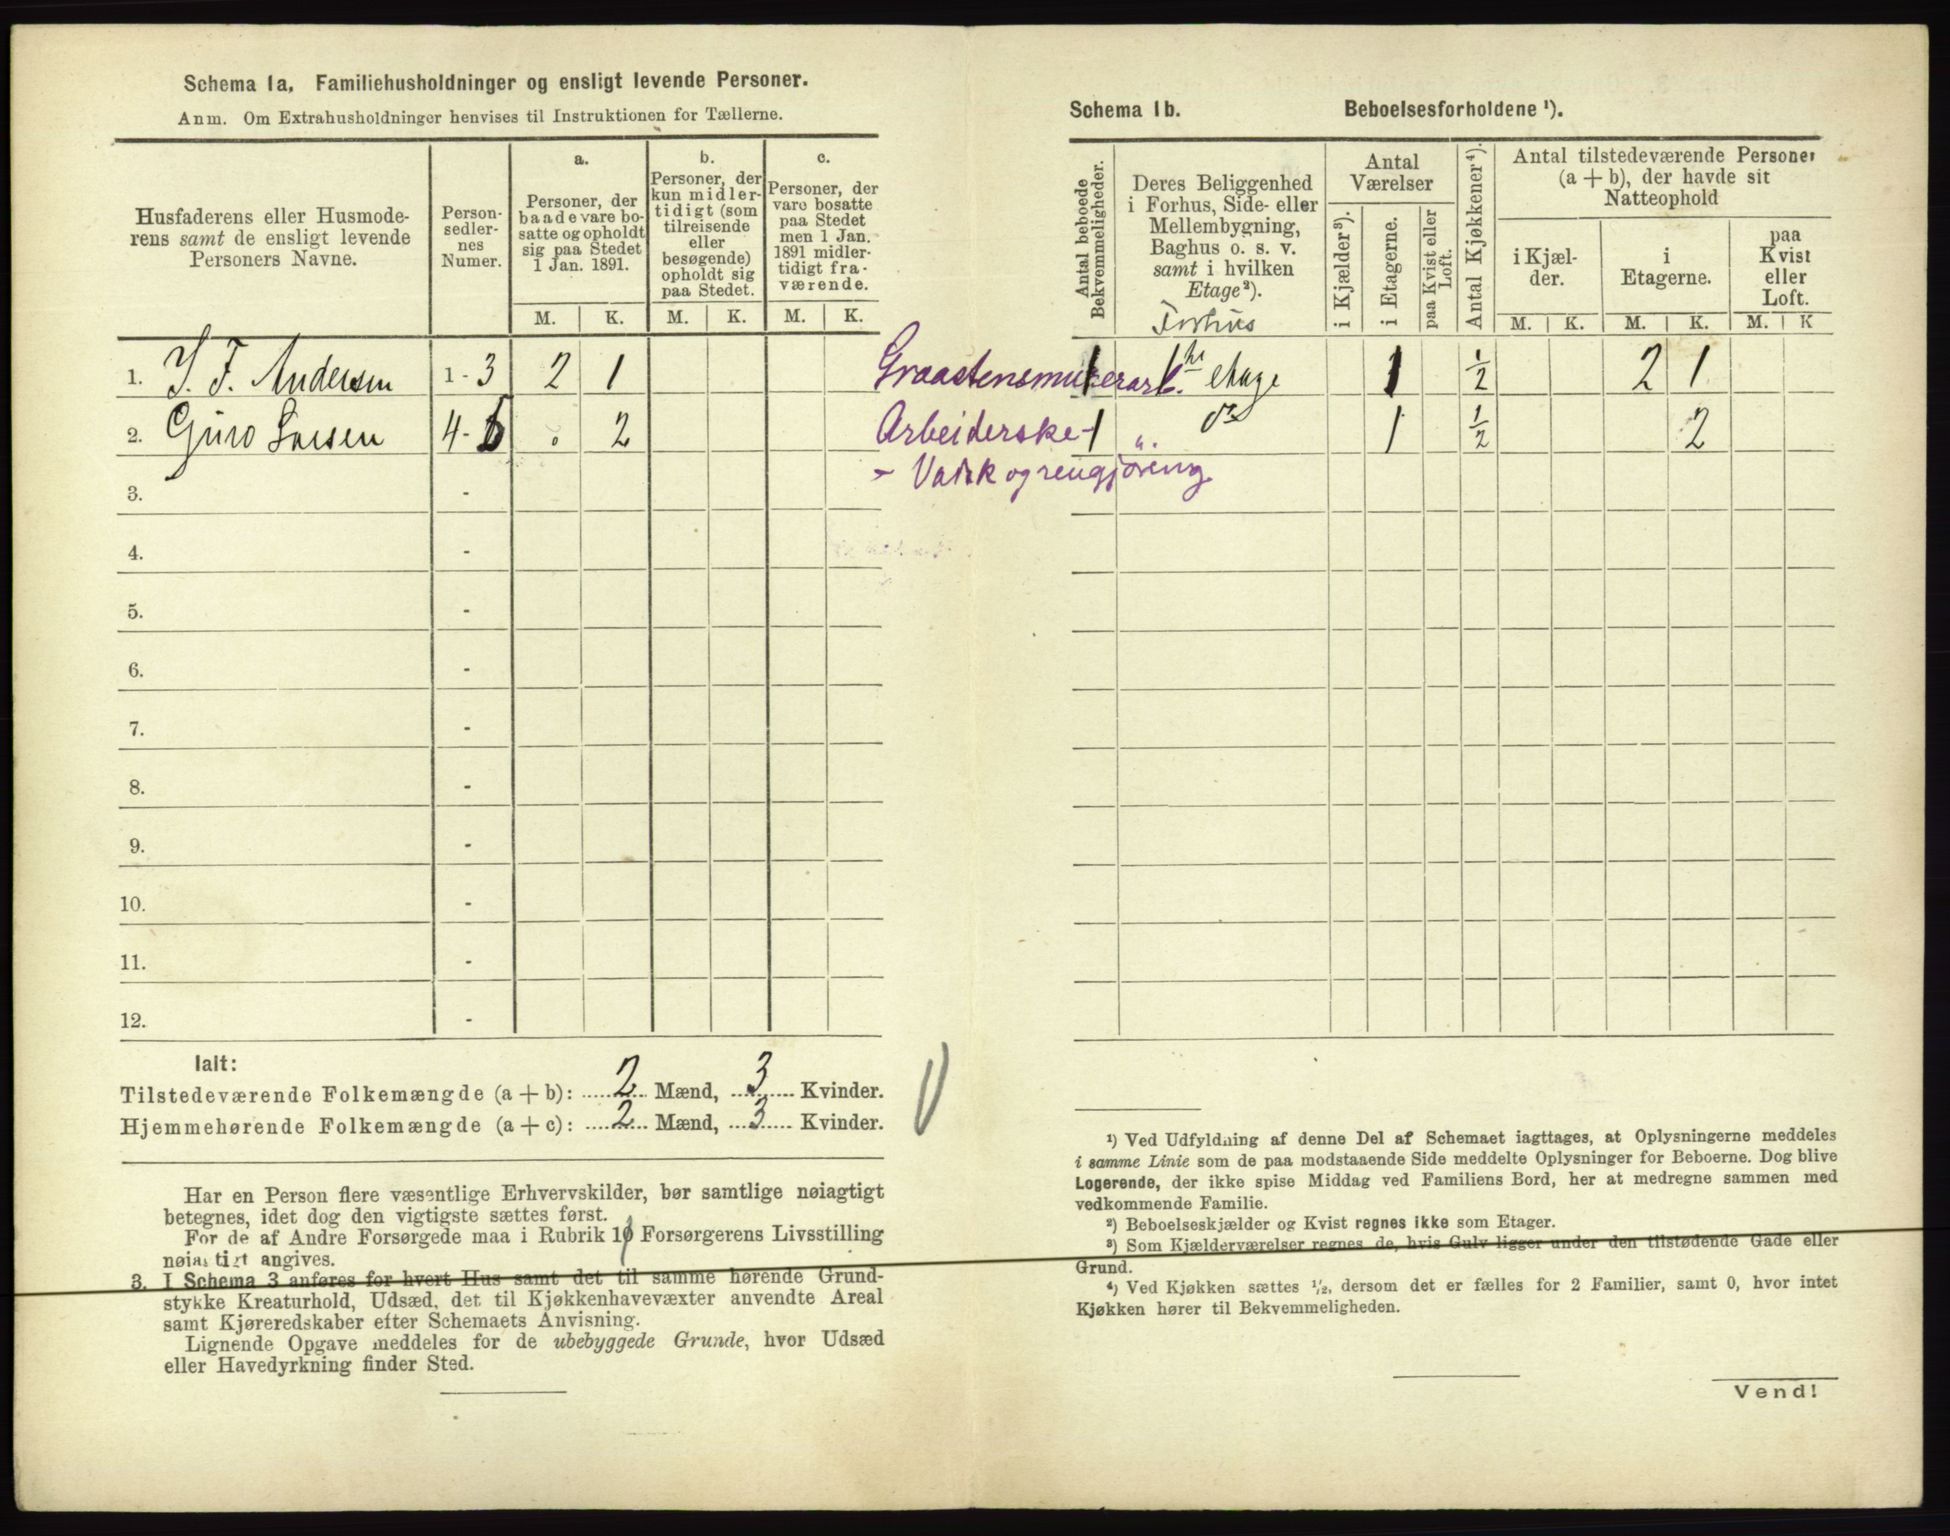 Schema 1a, Familiehusholdninger og ensligt levende Personer.
Anm. Om Extrahusholdninger henvises til Instruktionen for Tællerne.
Husfaderens eller Husmode-
rens samt de ensligt levende
Personers Navne.
Person-
sedler-
nes
Numer.
a.
Personer, der
baade vare bo-
satte og opholdt
sig paa Stedet
1 Jan. 1891.
b.
Personer, der
kun midler-
tidigt (som
tilreisende
eller
besøgende)
opholdt sig
paa Stedet.
c.
Personer, der
vare bosatte
paa Stedet
men 1 Jan.
1891 midler-
tidigt fra-
værende.
M. K. M. K. M. K.
1. J. F. Andersen 1 - 3 2 1
2. Guro Larsen 4 - 5 0 2
3. -
4. -
5. -
6. -
7. -
8. -
9. -
10. -
11. -
12. -
Ialt:
Tilstedeværende Folkemængde (a + b): 2 Mænd, 3 Kvinder.
Hjemmehørende Folkemængde (a + c): 2 Mænd, 3 Kvinder.
Har en Person flere væsentlige Erhvervskilder, bør samtlige nøiagtigt
betegnes, idet dog den vigtigste sættes først.
For de af Andre Forsørgede maa i Rubrik 10 Forsørgerens Livsstilling
nøiagtigt angives.
3. I Schema 3 anføres for hvert Hus samt det til samme hørende Grund-
stykke Kreaturhold, Udsæd, det til Kjøkkenhavevæxter anvendte Areal
samt Kjøreredskaber efter Schemaets Anvisning.
Lignende Opgave meddeles for de ubebyggede Grunde, hvor Udsæd
eller Havedyrkning finder Sted.
Schema 1b. Beboelsesforholdene ¹).
Antal beboede
Bekvemmeligheder.
Deres Beliggenhed
i Forhus, Side- eller
Mellembygning,
Baghus o. s. v.
samt i hvilken
Etage²).
Forhus
Antal
Værelser
i Kjælder³).
i Etagerne.
paa Kvist eller
Loft.
Antal Kjøkkener⁴).
Antal tilstedeværende Personer
(a + b), der havde sit
Natteophold
i Kjæl-
der.
i
Etagerne.
paa
Kvist
eller
Loft.
M. K. M. K. M. K
Graastensmurerarb. 1 1 etage 1 ½ 2 1
Arbeiderske - 1 „ do 1 ½ 2
- Vask og rengjøring
¹) Ved Udfyldning af denne Del af Schemaet iagttages, at Oplysningerne meddeles
i samme Linie som de paa modstaaende Side meddelte Oplysninger for Beboerne. Dog blive
Logerende, der ikke spise Middag ved Familiens Bord, her at medregne sammen med
vedkommende Familie.
²) Beboelseskjælder og Kvist regnes ikke som Etager.
³) Som Kjælderværelser regnes de, hvis Gulv ligger under den tilstødende Gade eller
Grund.
⁴) Ved Kjøkken sættes ½, dersom det er fælles for 2 Familier, samt 0, hvor intet
Kjøkken hører til Bekvemmeligheden.
Vend!